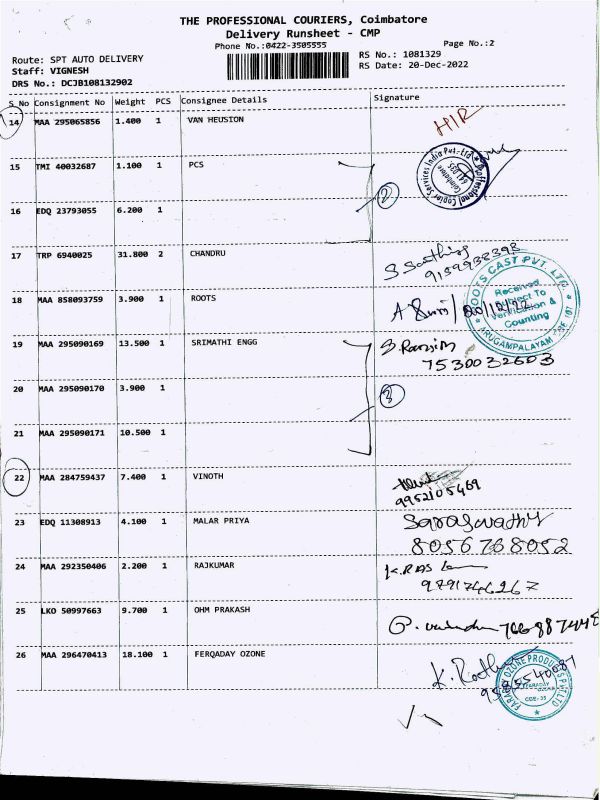 THE PROFESSIONAL COURIERS, Coimbatore
Delivery Runsheet - CMP
Phone No.:0422-3505555
Page No.:2
Route: SPT AUTO DELIVERY
RS No.: 1081329
Staff: VIGNESH
RS Date: 20-Dec-2022
DRS No.: DCJB108132902
S No Consignment No Weight PCS Consignee Details Signature
14 MAA 295065856 1.400 1 VAN HEUSION
15 TMI 40032687 1.100 1 PCS
2
16 EDQ 23793055 6.200 1
17 TRP 6940025 31.800 2 CHANDRU
9159932393
18 MAA 858093759 3.900 1 ROOTS
20/12/22
ROOTS CAST PVT. LTD.
Received
Subject To
Verification &
Counting
19 MAA 295090169 13.500 1 SRIMATHI ENGG
7530032603
20 MAA 295090170 3.900 1
3
21 MAA 295090171 10.500 1
22 MAA 284759437 7.400 1 VINOTH
9952105469
23 EDQ 11308913 4.100 1 MALAR PRIYA
Saraswathy
8056768052
24 MAA 292350406 2.200 1 RAJKUMAR
9791746267
25 LKO 50997663 9.700 1 OHM PRAKASH
26 MAA 296470413 18.100 1 FERQADAY OZONE
FARADAY OZONE PRODUCTS PVT LTD